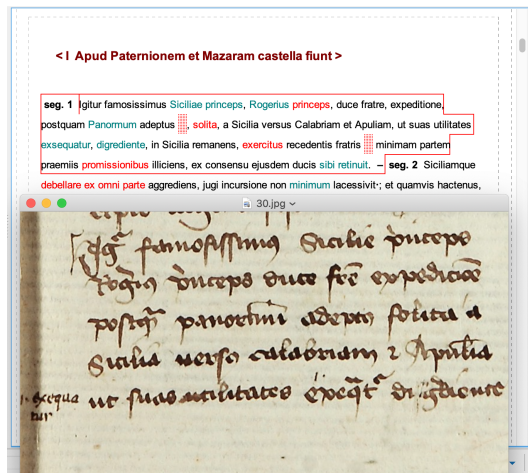 < I Apud Paternionem et Mazaram castella fiunt >
seg. 1 Igitur famosissimus Siciliae princeps, Rogerius princeps, duce fratre, expeditione,
postquam Panormum adeptus , solita, a Sicilia versus Calabriam et Apuliam, ut suas utilitates
exsequatur, digrediente, in Sicilia remanens, exercitus recedentis fratris minimam partem
praemiis promissionibus illiciens, ex consensu ejusdem ducis sibi retinuit. – seg. 2 Siciliamque
debellare ex omni parte aggrediens, jugi incursione non minimum lacessivit·; et quamvis hactenus,
30.jpg
Igr famosissimus Sicilie princeps
Rogerius princeps duce fre expedicioe
postq panormu adeptus solita a
Sicilia verso calabriam z Apulia
exequa
tur
ut suas utilitates exeqt digrediente